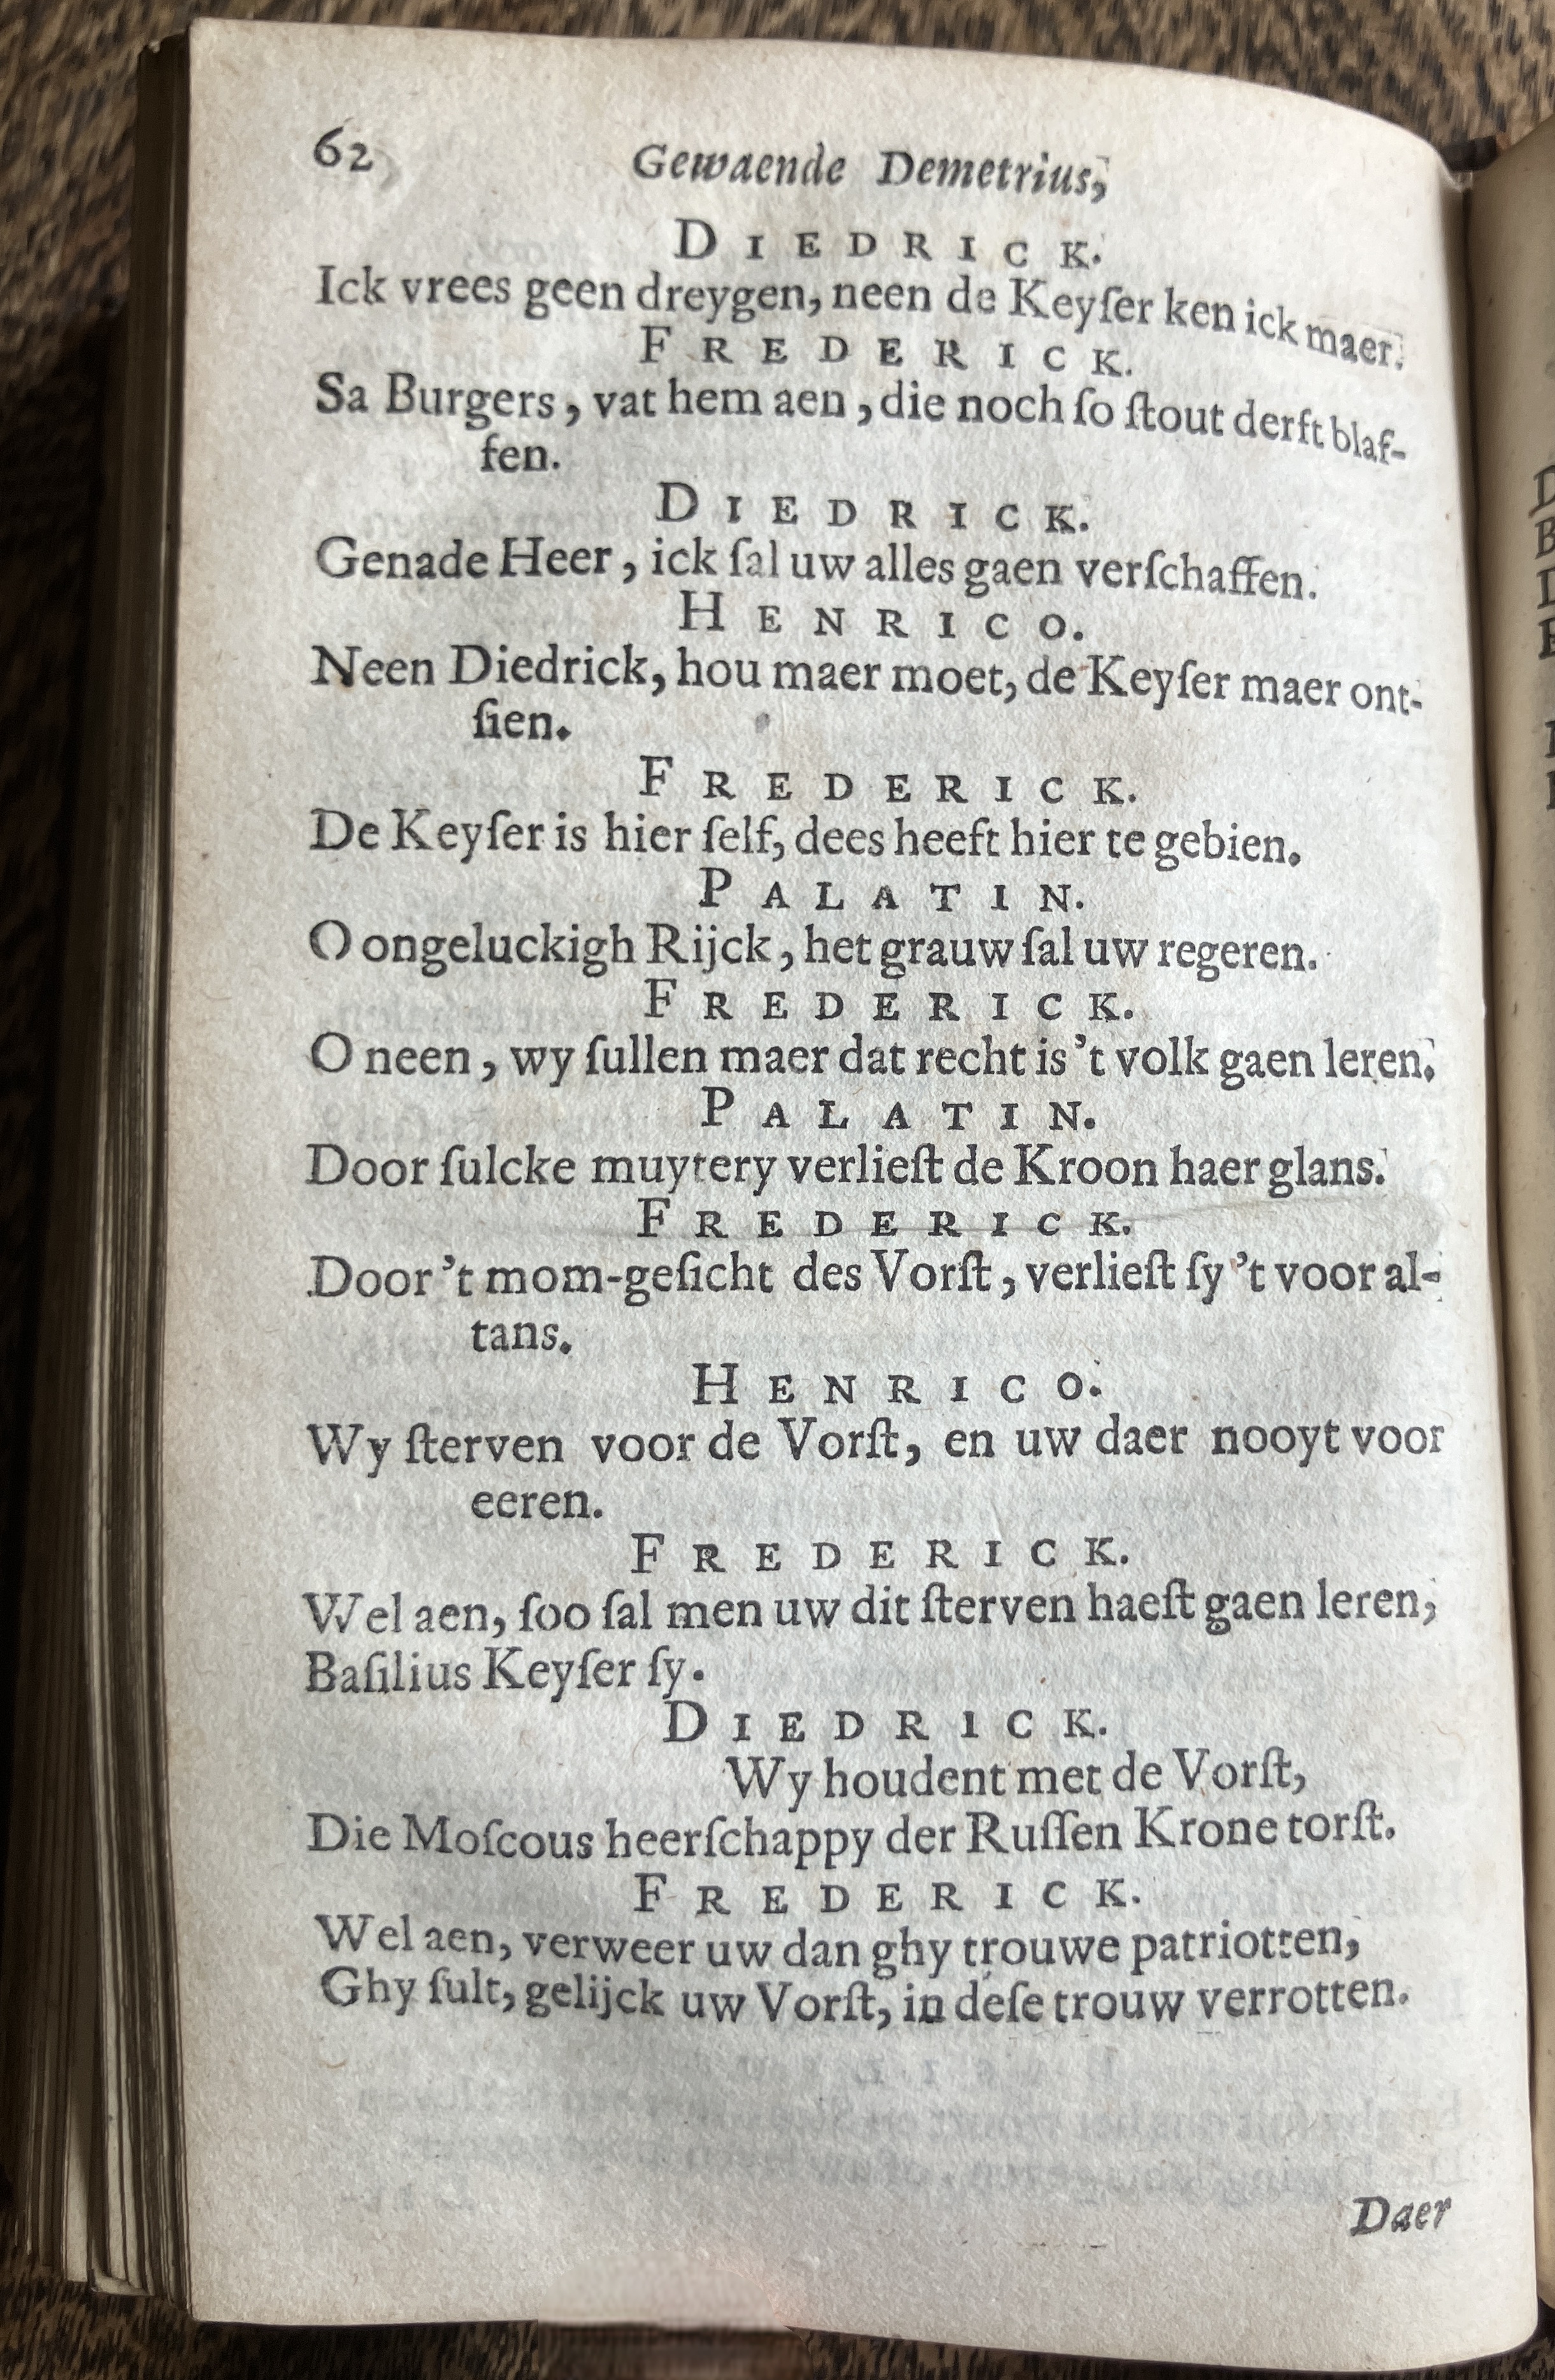 62 Gewaende Demetrius,
DIEDRICK.
Ick vrees geen dreygen, neen de Keyſer ken ick maer.
FREDERICK.
Sa Burgers, vat hem aen, die noch ſo ſtout derft blaf-
fen.
DIEDRICK.
Genade Heer, ick ſal uw alles gaen verſchaffen.
HENRICO.
Neen Diedrick, hou maer moet, de Keyſer maer ont-
ſien.
FREDERICK.
De Keyſer is hier ſelf, dees heeft hier te gebien.
PALATIN.
O ongeluckigh Rijck, het grauw ſal uw regeren.
FREDERICK.
O neen, wy ſullen maer dat recht is 't volk gaen leren.
PALATIN.
Door ſulcke muytery verlieſt de Kroon haer glans.
FREDERICK.
Door 't mom-geſicht des Vorſt, verlieſt ſy 't voor al-
tans.
HENRICO.
Wy ſterven voor de Vorſt, en uw daer nooyt voor
eeren.
FREDERICK.
Wel aen, ſoo ſal men uw dit ſterven haeſt gaen leren,
Baſilius Keyſer ſy.
DIEDRICK.
Wy houdent met de Vorſt,
Die Moſcous heerſchappy der Ruſſen Krone torſt.
FREDERICK.
Wel aen, verweer uw dan ghy trouwe patriotten,
Ghy ſult, gelijck uw Vorſt, in deſe trouw verrotten.
Daer